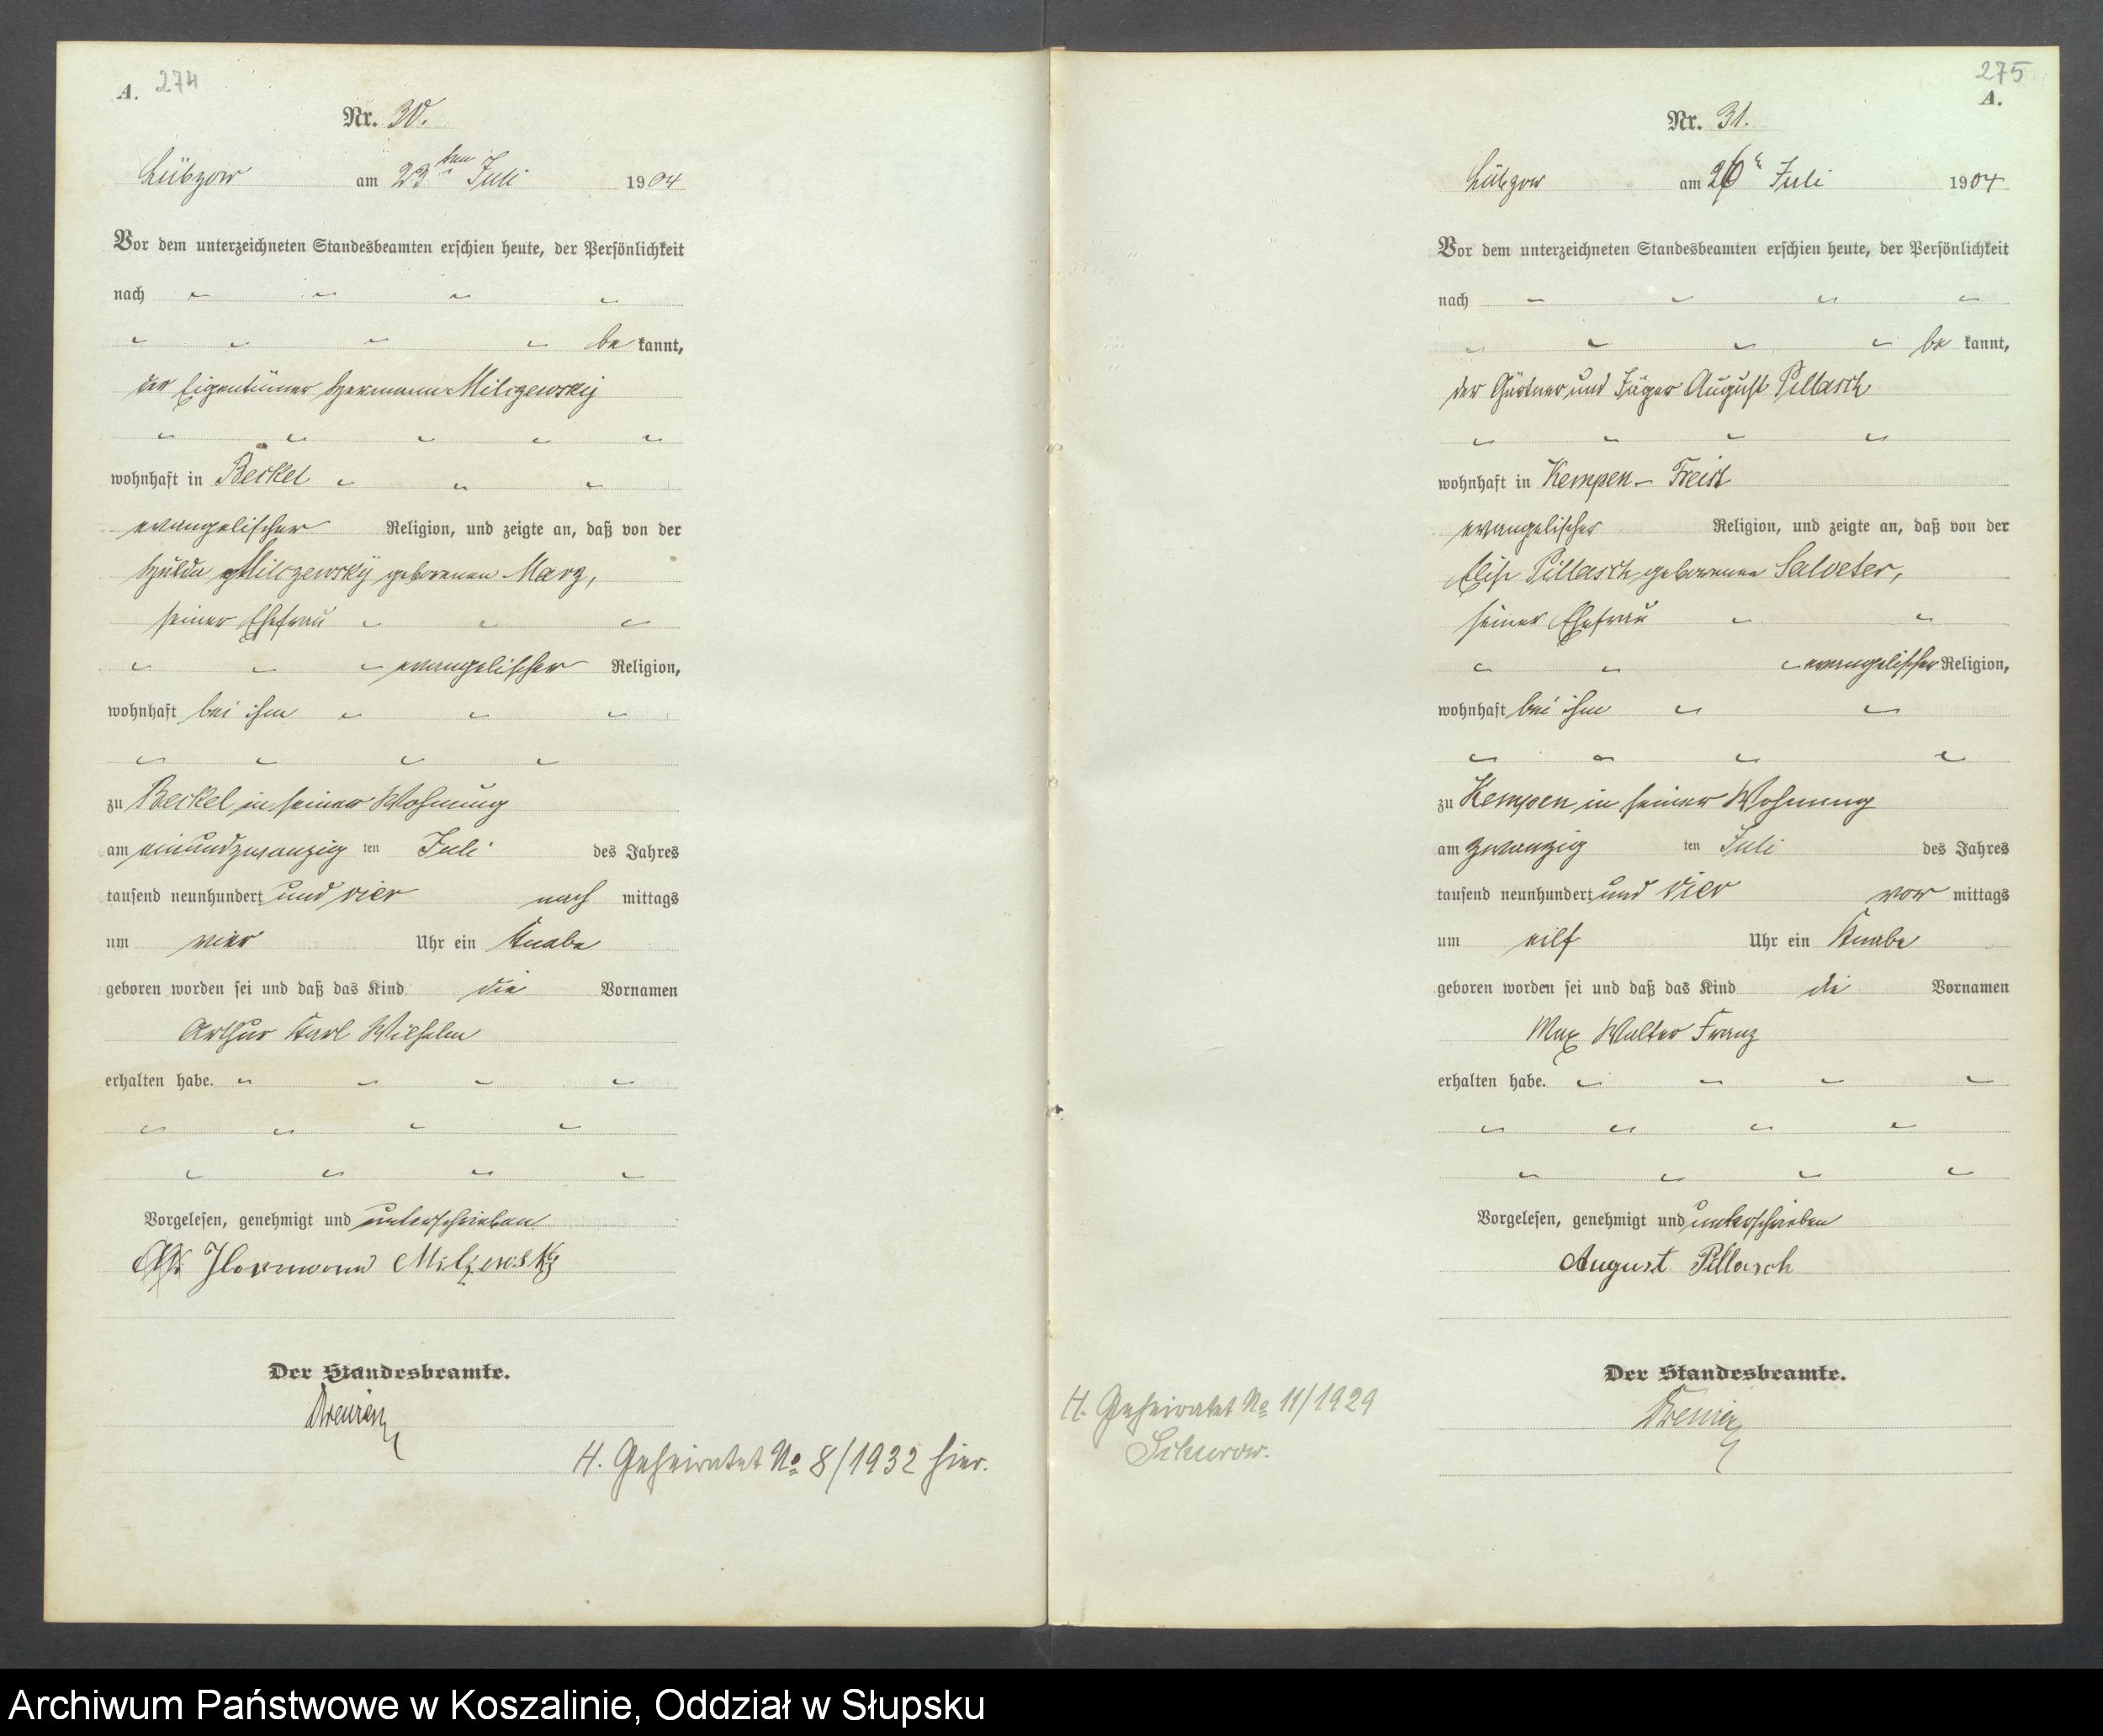 A. 274
Nr. 30.
Lübzow am 23ten Juli 1904
Vor dem unterzeichneten Standesbeamten erschien heute, der Persönlichkeit
nach
be kannt,
der Eigentümer Hermann Milczewskij
wohnhaft in Beckel
evangelischer Religion, und zeigte an, daß von der
Hulda Milczewskij geborenen Marz,
seiner Ehefrau
evangelischer Religion,
wohnhaft bei ihm
zu Beckel in seiner Wohnung
am einundzwanzig ten Juli des Jahres
tausend neunhundert und vier nach mittags
um vier Uhr ein Knabe
geboren worden sei und daß das Kind die Vornamen
Arthur Karl Wilhelm
erhalten habe.
Vorgelesen, genehmigt und unterschrieben
Hermann Milzewsky
Der Standesbeamte.
H. Geheiratet No 8/1932 hier.
275
A.
Nr. 31.
Lübzow am 26 Juli 1904
Vor dem unterzeichneten Standesbeamten erschien heute, der Persönlichkeit
nach
be kannt,
der Gärtner und Jäger August Pillasch
wohnhaft in Kempen - Freist
evangelischer Religion, und zeigte an, daß von der
Elise Pillasch, geborenen Salveter,
seiner Ehefrau
evangelischer Religion,
wohnhaft bei ihm
zu Kempen in seiner Wohnung
am zwanzig ten Juli des Jahres
tausend neunhundert und vier vor mittags
um eilf Uhr ein Knabe
geboren worden sei und daß das Kind die Vornamen
Max Walter Franz
erhalten habe.
Vorgelesen, genehmigt und unterschrieben
August Pillasch
Der Standesbeamte.
H. Geheiratet No 11/1929
Schurow.
Archiwum Państwowe w Koszalinie, Oddział w Słupsku